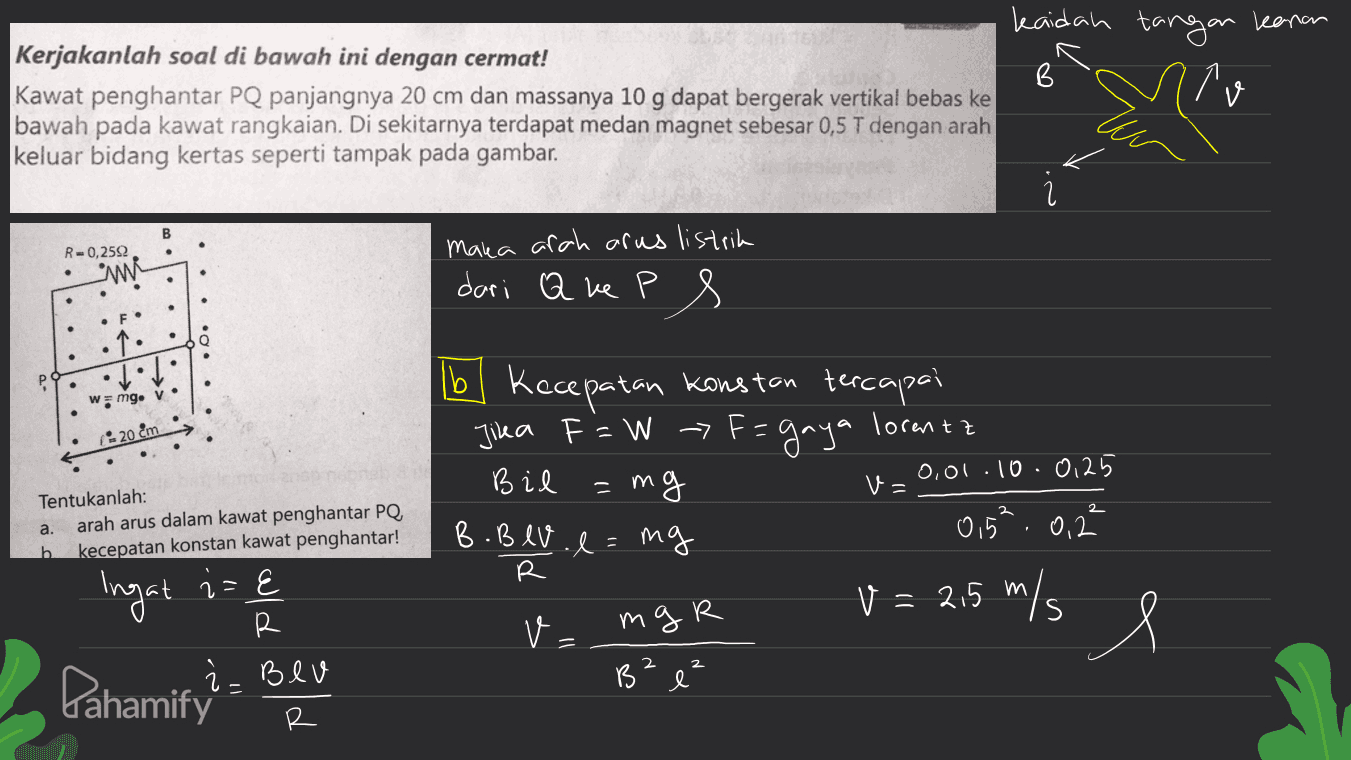 kaidah tangan kanan
B
v
i
Kerjakanlah soal di bawah ini dengan cermat!
Kawat penghantar PQ panjangnya 20 cm dan massanya 10 g dapat bergerak vertikal bebas ke
bawah pada kawat rangkaian. Di sekitarnya terdapat medan magnet sebesar 0,5 T dengan arah
keluar bidang kertas seperti tampak pada gambar.
R = 0,25Ω
B
F
Q
P
w = mg
v
l = 20 cm
Tentukanlah:
a. arah arus dalam kawat penghantar PQ
b kecepatan konstan kawat penghantar!
maka arah arus listrik
dari Q ke P
b Kecepatan konstan tercapai
Jika F = W → F = gaya lorentz
Bil = mg
B . Blv/R . l = mg
v = mgR / B² l²
v = 0,01 . 10 . 0,25 / 0,5² . 0,2²
v = 2,5 m/s
Ingat i = ε/R
i = Blv/R
Pahamify